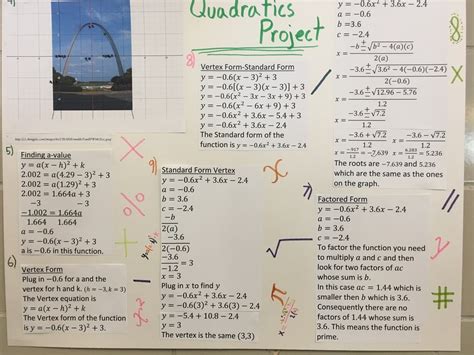 4)
Quadratics
Project
5)
Finding a-value
y = a(x − h)² + k
2.002 = a(4.29 − 3)² + 3
2.002 = a(1.29)² + 3
−3 a − 3
−1.002 = 1.664a
1.664 1.664
a = −0.6
y = −0.6(x − 3)² + 3
a is −0.6 in this function.
6)
Vertex Form
Plug in −0.6 for a and the
vertex for h and k. (h = −3, k = 3)
The Vertex equation is
y = a(x − h)² + k
The Vertex form of the function
is y = −0.6(x − 3)² + 3.
8)
Vertex Form-Standard Form
y = −0.6(x − 3)² + 3
y = −0.6[(x − 3)(x − 3)] + 3
y = −0.6(x² − 3x − 3x + 9) + 3
y = −0.6(x² − 6x + 9) + 3
y = −0.6x² + 3.6x − 5.4 + 3
y = −0.6x² + 3.6x − 2.4
The Standard form of the
function is y = −0.6x² + 3.6x − 2.4
9)
Standard Form Vertex
y = −0.6x² + 3.6x − 2.4
a = −0.6
b = 3.6
c = −2.4
−b
2(a)
−3.6
2(−0.6)
−3.6
−1.2
x = 3
Plug in x to find y
y = −0.6x² + 3.6x − 2.4
y = −0.6(3)² + 3.6(3) − 2.4
y = −5.4 + 10.8 − 2.4
y = 3
The vertex is the same (3,3)
y = −0.6x² + 3.6x − 2.4
a = −0.6
b = 3.6
c = −2.4
−b ± √b² − 4(a)(c)
2(a)
−3.6 ± √(3.6² − 4(−0.6)(−2.4)
2(−0.6)
−3.6 ± √12.96 − 5.76
−1.2
x = −3.6 ± √7.2
−1.2
x = −3.6 + √7.2
−1.2
x = −3.6 − √7.2
−1.2
The roots are −7.639 and 5.236
which are the same as the ones
on the graph.
7)
Factored Form
y = −0.6x² + 3.6x − 2.4
a = −0.6
b = 3.6
c = −2.4
To factor the function you need
to multiply a and c and then
look for two factors of ac
whose sum is b.
In this case ac = 1.44 which is
smaller then b which is 3.6.
Consequently there are no
factors of 1.44 whose sum is
3.6. This means the function is
prime.